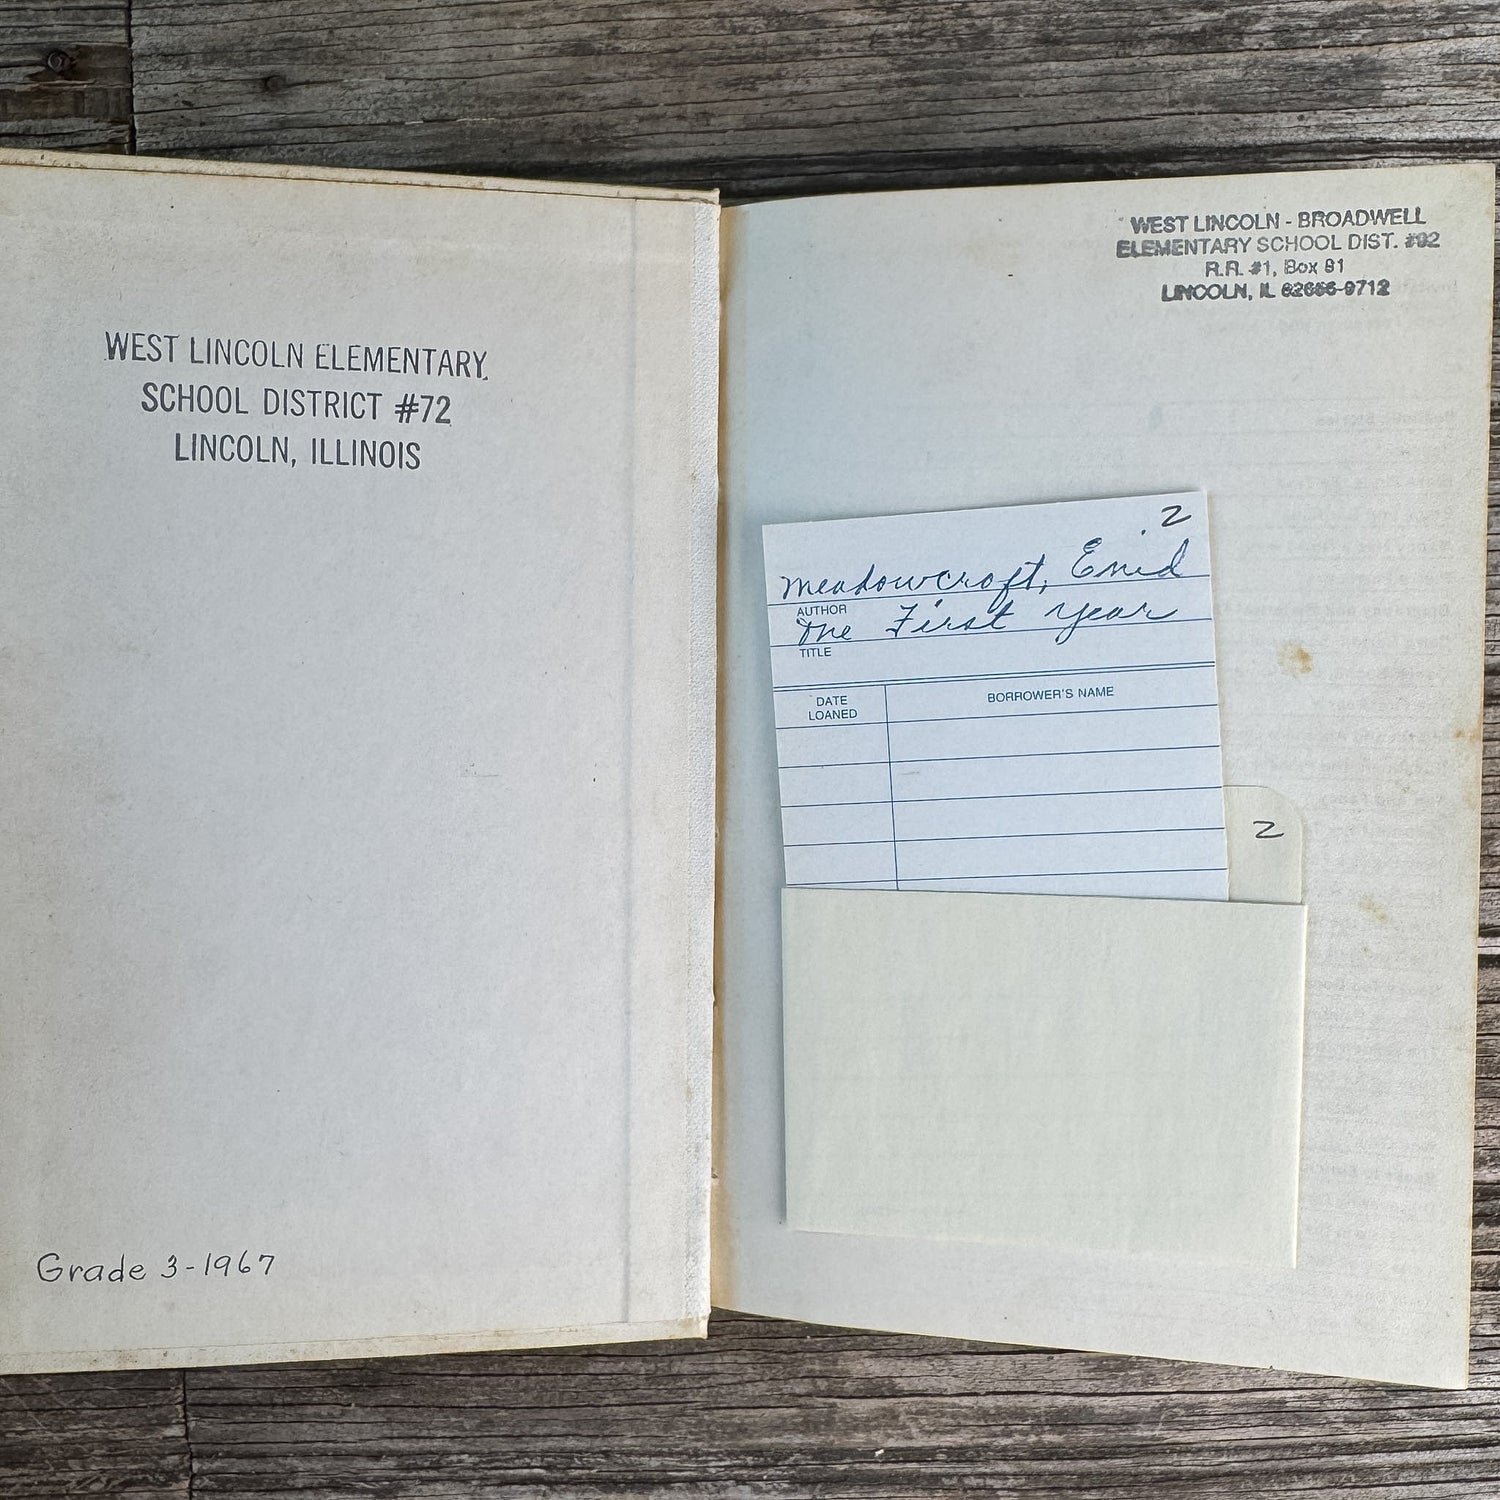 WEST LINCOLN ELEMENTARY
SCHOOL DISTRICT #72
LINCOLN, ILLINOIS
Grade 3-1967
WEST LINCOLN - BROADWELL
ELEMENTARY SCHOOL DIST. #92
R.R. #1, Box 81
LINCOLN, IL 62656-9712
2
Meadowcroft, Enid
AUTHOR
The First Year
TITLE
DATE LOANED
BORROWER'S NAME
2